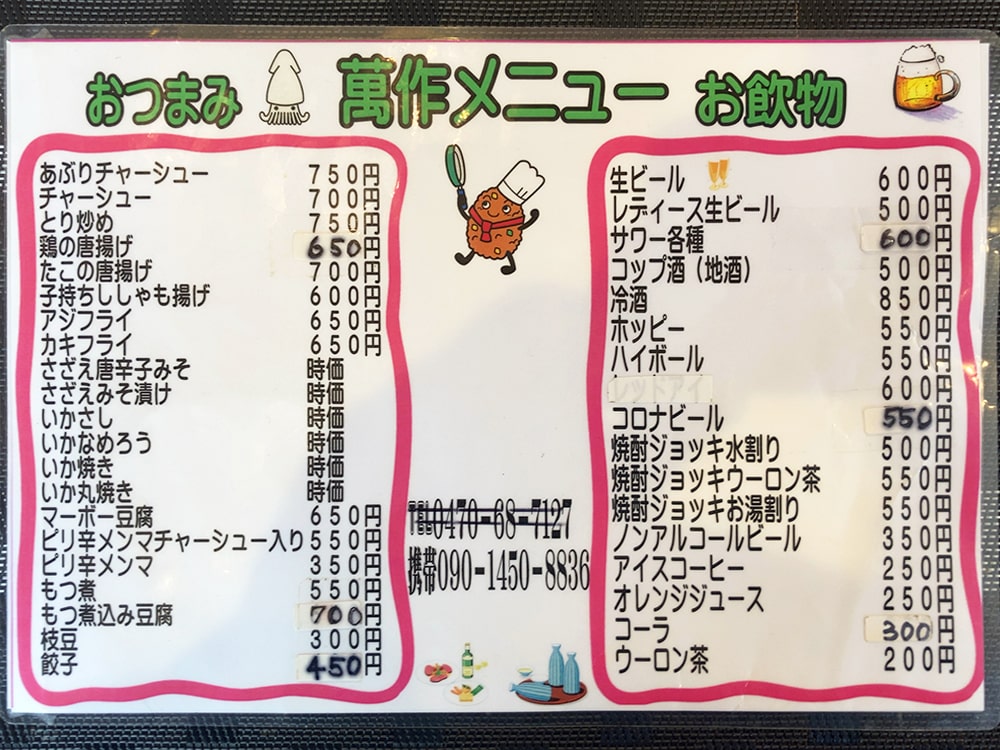 おつまみ
萬作メニュー
お飲物
あぶりチャーシュー 750円
チャーシュー 700円
とり炒め 750円
鶏の唐揚げ 650円
たこの唐揚げ 700円
子持ちししゃも揚げ 600円
アジフライ 650円
カキフライ 650円
さざえ唐辛子みそ 時価
さざえみそ漬け 時価
いかさし 時価
いかなめろう 時価
いか焼き 時価
いか丸焼き 時価
マーボー豆腐 650円
ピリ辛メンマチャーシュー入り 550円
ピリ辛メンマ 350円
もつ煮 550円
もつ煮込み豆腐 700円
枝豆 300円
餃子 450円
TEL0470-68-7127
携帯090-1450-8836
生ビール 600円
レディース生ビール 500円
サワー各種 600円
コップ酒（地酒） 500円
冷酒 850円
ホッピー 550円
ハイボール 550円
レッドアイ 600円
コロナビール 550円
焼酎ジョッキ水割り 500円
焼酎ジョッキウーロン茶 550円
焼酎ジョッキお湯割り 550円
ノンアルコールビール 350円
アイスコーヒー 250円
オレンジジュース 250円
コーラ 300円
ウーロン茶 200円